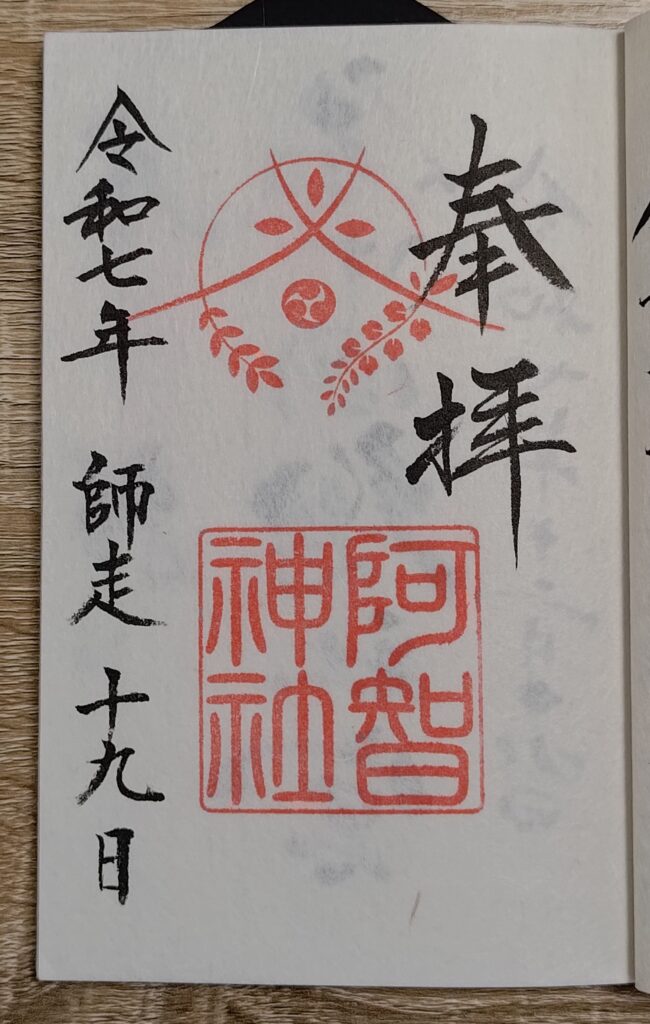 奉拝
阿智
神社
令和七年 師走 十九日